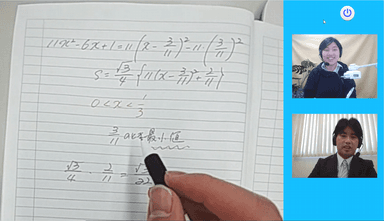 11x²-6x+1=11(x-3/11)²-11(3/11)²
S=√3/4{11(x-3/11)²+2/11}
0<x<1/3
3/11 のとき最小値
√3/4・2/11=